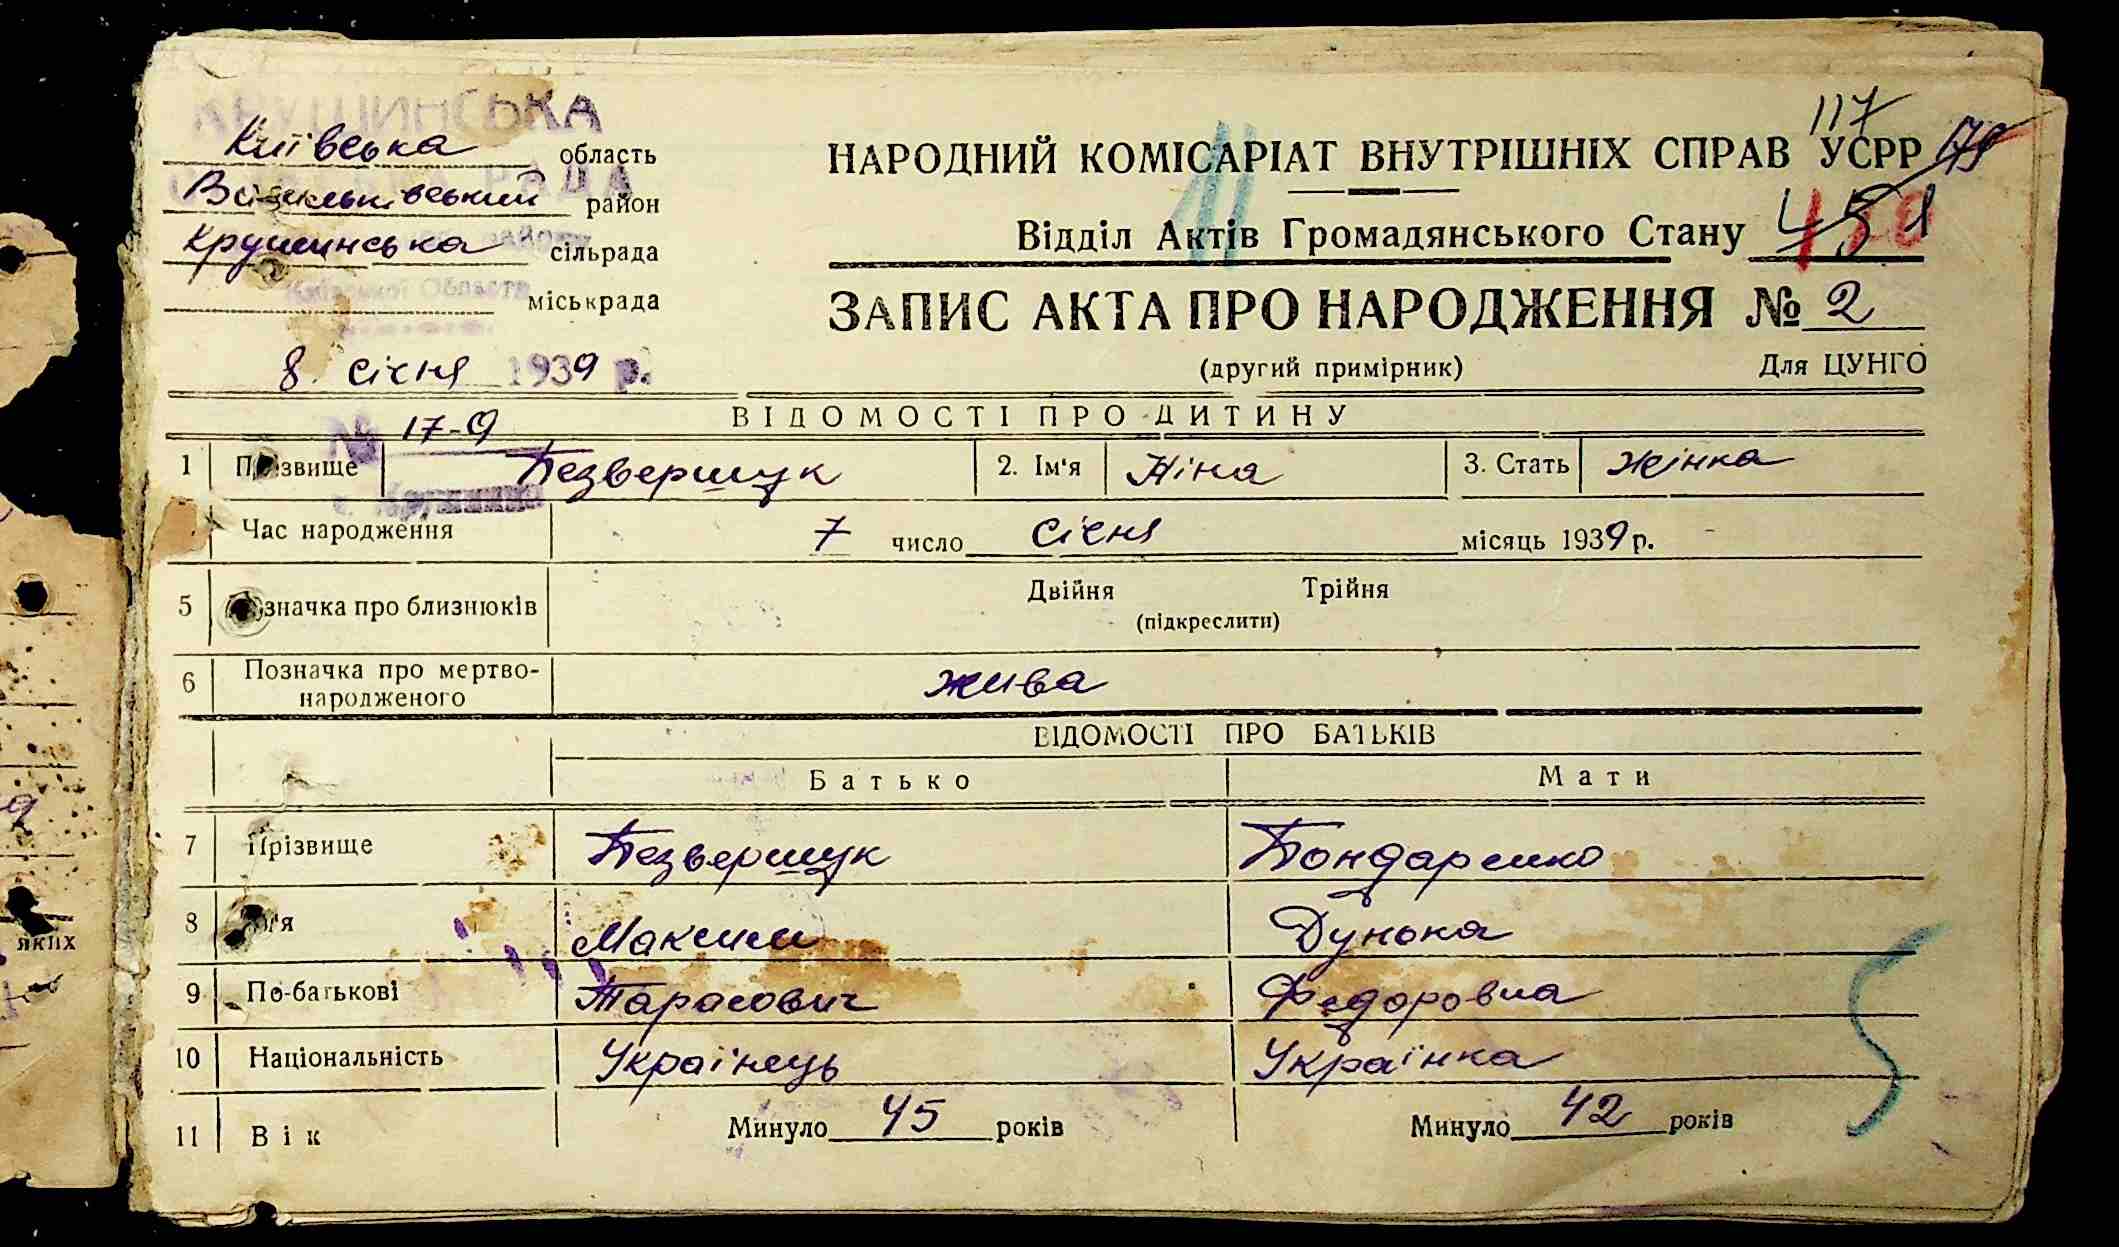 КРУШИНСЬКА
117
Київська область
НАРОДНИЙ КОМІСАРІАТ ВНУТРІШНІХ СПРАВ УСРР
РАДА
Васильківський район
Відділ Актів Громадянського Стану
Крушинська сільрада
Київської Области
міськрада
ЗАПИС АКТА ПРО НАРОДЖЕННЯ № 2
8 січня 1939 р.
(другий примірник) Для ЦУНГО
ВІДОМОСТІ ПРО ДИТИНУ
№ 17-9
1 Прізвище Безвершук 2. Ім'я Ніна 3. Стать жінка
Час народження 7 число січня місяць 1939 р.
5 Позначка про близнюків Двійня Трійня
(підкреслити)
6 Позначка про мертво-
народженого жива
ВІДОМОСТІ ПРО БАТЬКІВ
Батько Мати
7 Прізвище Безвершук Бондаренко
8 Ім'я Максим Дунька
яких
9 По-батькові Тарасович Федоровна
10 Національність Українець Українка
11 Вік Минуло 45 років Минуло 42 років